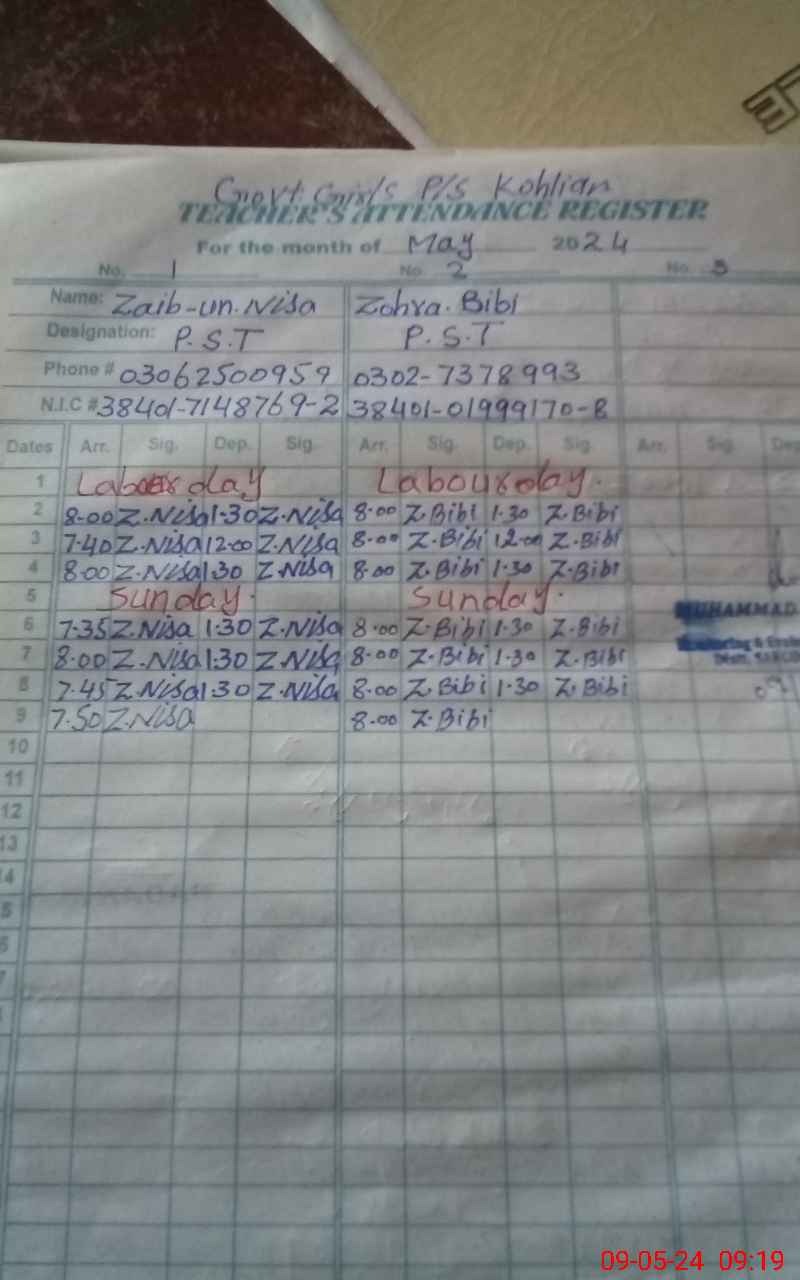 Govt Girls P/S Kohlian
TEACHER'S ATTENDANCE REGISTER
For the month of May 2024
No. 1 No. 2 No. 3
Name: Zaib-un-Nisa Zohra. Bibi
Designation: P.S.T P.S.T
Phone # 03062500959 0302-7378993
N.I.C # 38401-7148769-2 38401-01999170-8
Dates Arr. Sig. Dep. Sig. Arr. Sig. Dep. Sig. Arr. Sig. Dep
1 Labour day Labour day.
2 8.00 Z.Nisa 1.30 Z.Nisa 8.00 Z.Bibi 1.30 Z.Bibi
3 7.40 Z.Nisa 12.00 Z.Nisa 8.00 Z.Bibi 12.00 Z.Bibi
4 8.00 Z.Nisa 1.30 Z.Nisa 8.00 Z.Bibi 1.30 Z.Bibi
5 Sunday. Sunday.
6 7.35 Z.Nisa 1.30 Z.Nisa 8.00 Z.Bibi 1.30 Z.Bibi
MUHAMMAD
7 8.00 Z.Nisa 1.30 Z.Nisa 8.00 Z.Bibi 1.30 Z.Bibi
8 7.45 Z.Nisa 1.30 Z.Nisa 8.00 Z.Bibi 1.30 Z.Bibi
9 7.50 Z.Nisa 8.00 Z.Bibi
10
11
12
13
4
5
6
7
09-05-24 09:19